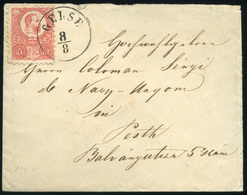 GELSE
8/8
5
Hochwohlgeboren
Herrn Coloman Sörgi
de Nagy-Unyom
in
Pesth
Bálványutcza 5